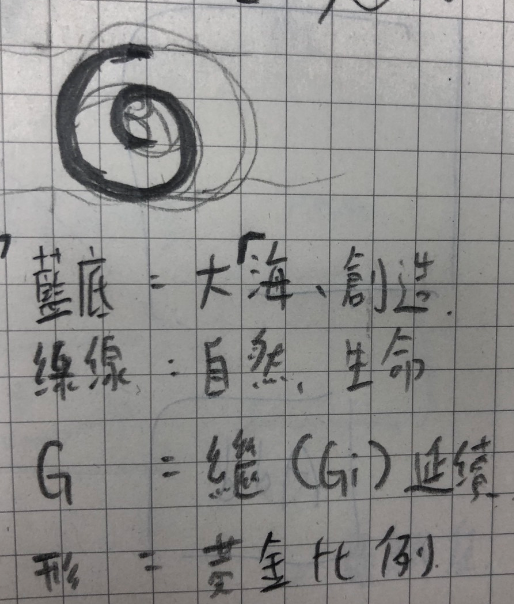 藍底=大海、創造.
綠線=自然、生命
G =繼(Gi)延續
形 =黃金比例